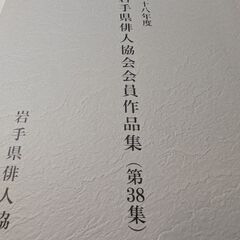 十八年度
岩手県俳人協会会員作品集(第38集)
岩手県俳人協